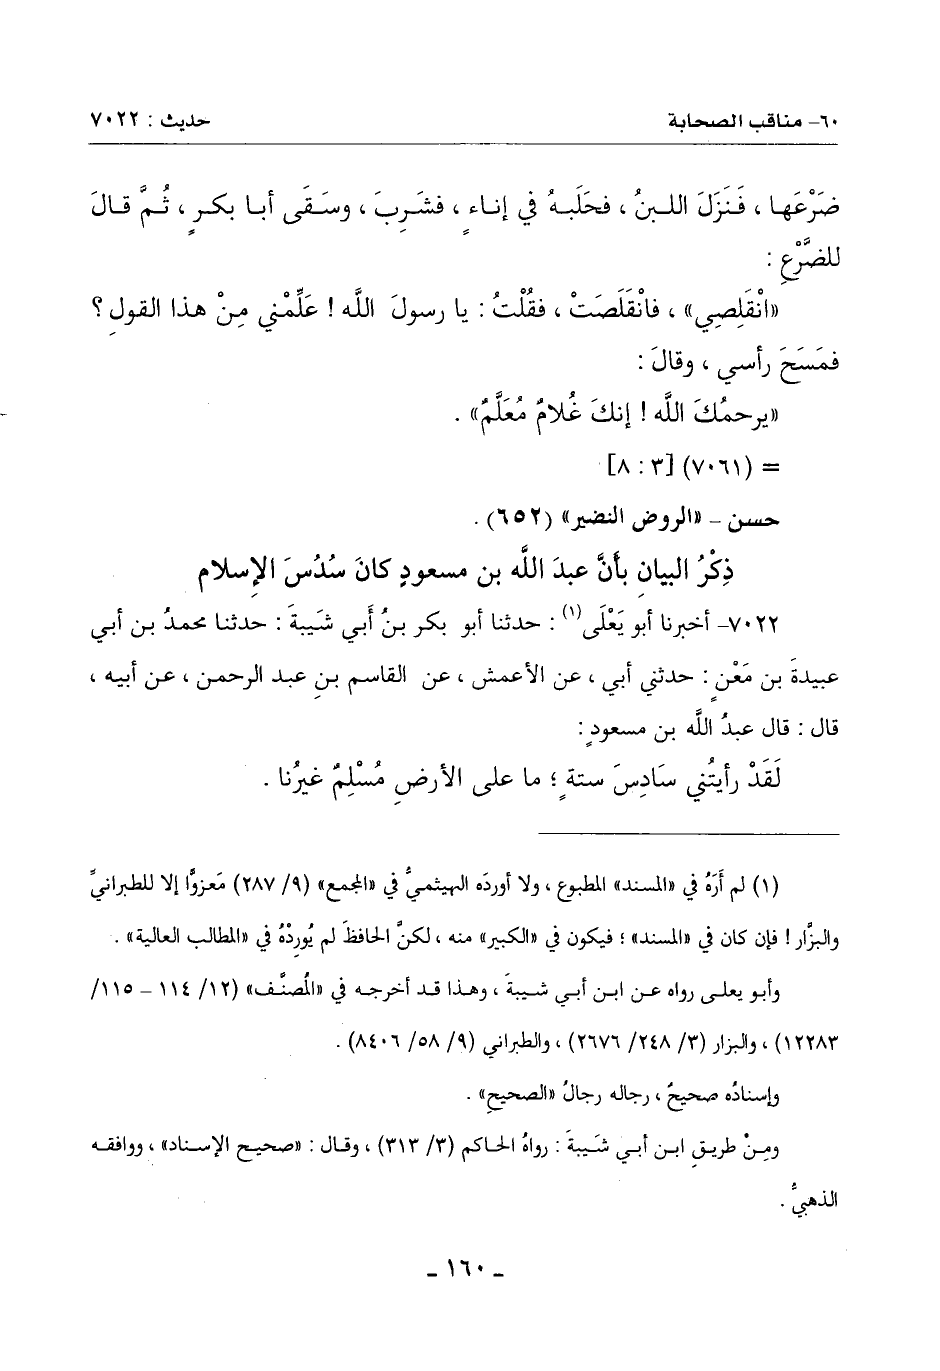 ٦٠- مناقب الصحابة
حديث : ٧٠٢٢
ضَرْعَها ، فَنَزَلَ اللبنُ ، فحَلَبهُ في إناءٍ ، فشَرِبَ ، وسَقَى أبا بكرٍ ، ثُمَّ قالَ
للضَّرْعِ :
«انْقَلِصِي» ، فانْقَلَصَتْ ، فقُلْتُ : يا رسولَ اللَّه ! عَلِّمْني مِنْ هذا القولِ ؟
فمَسَحَ رأسي ، وقالَ :
«يرحمُكَ اللَّه ! إنكَ غُلامٌ مُعَلَّمٌ» .
= (٧٠٦١) [٣ : ٨]
حسن – «الروض النضير» (٦٥٢) .
ذِكْرُ البيانِ بأنَّ عبدَ اللَّه بن مسعودٍ كانَ سُدُسَ الإسلامِ
٧٠٢٢- أخبرنا أبو يَعْلَى(١) : حدثنا أبو بكر بنُ أَبي شَيبةَ : حدثنا محمدُ بن أبي
عبيدةَ بن مَعْنٍ : حدثني أبي ، عن الأعمش ، عن القاسم بنِ عبد الرحمن ، عن أبيه ،
قال : قال عبدُ اللَّه بن مسعودٍ :
لَقَدْ رأيتُني سَادِسَ ستةٍ ؛ ما على الأرضِ مُسْلِمٌ غيرُنا .
(١) لم أَرَهُ في «المسند» المطبوع ، ولا أوردَه الهيثميُّ في «المجمع» (٩/ ٢٨٧) مَعزوًّا إلا للطبرانيِّ
والبزَّار ! فإن كان في «المسند» ؛ فيكون في «الكبير» منه ، لكنَّ الحافظَ لم يُورِدْهُ في «المطالب العالية» .
وأبو يعلى رواه عن ابن أبي شيبةَ ، وهذا قد أخرجه في «المُصنَّف» (١٢/ ١١٤ – ١١٥/
١٢٢٨٣) ، والبزار (٣/ ٢٤٨/ ٢٦٧٦) ، والطبراني (٩/ ٥٨/ ٨٤٠٦) .
وإسنادُه صحيحٌ ، رجاله رجالُ «الصحيحِ» .
ومِنْ طريقِ ابن أبي شَيبةَ : رواهُ الحاكم (٣/ ٣١٣) ، وقال : «صحيح الإسناد» ، ووافقه
الذهبيُّ .
- ١٦٠ -